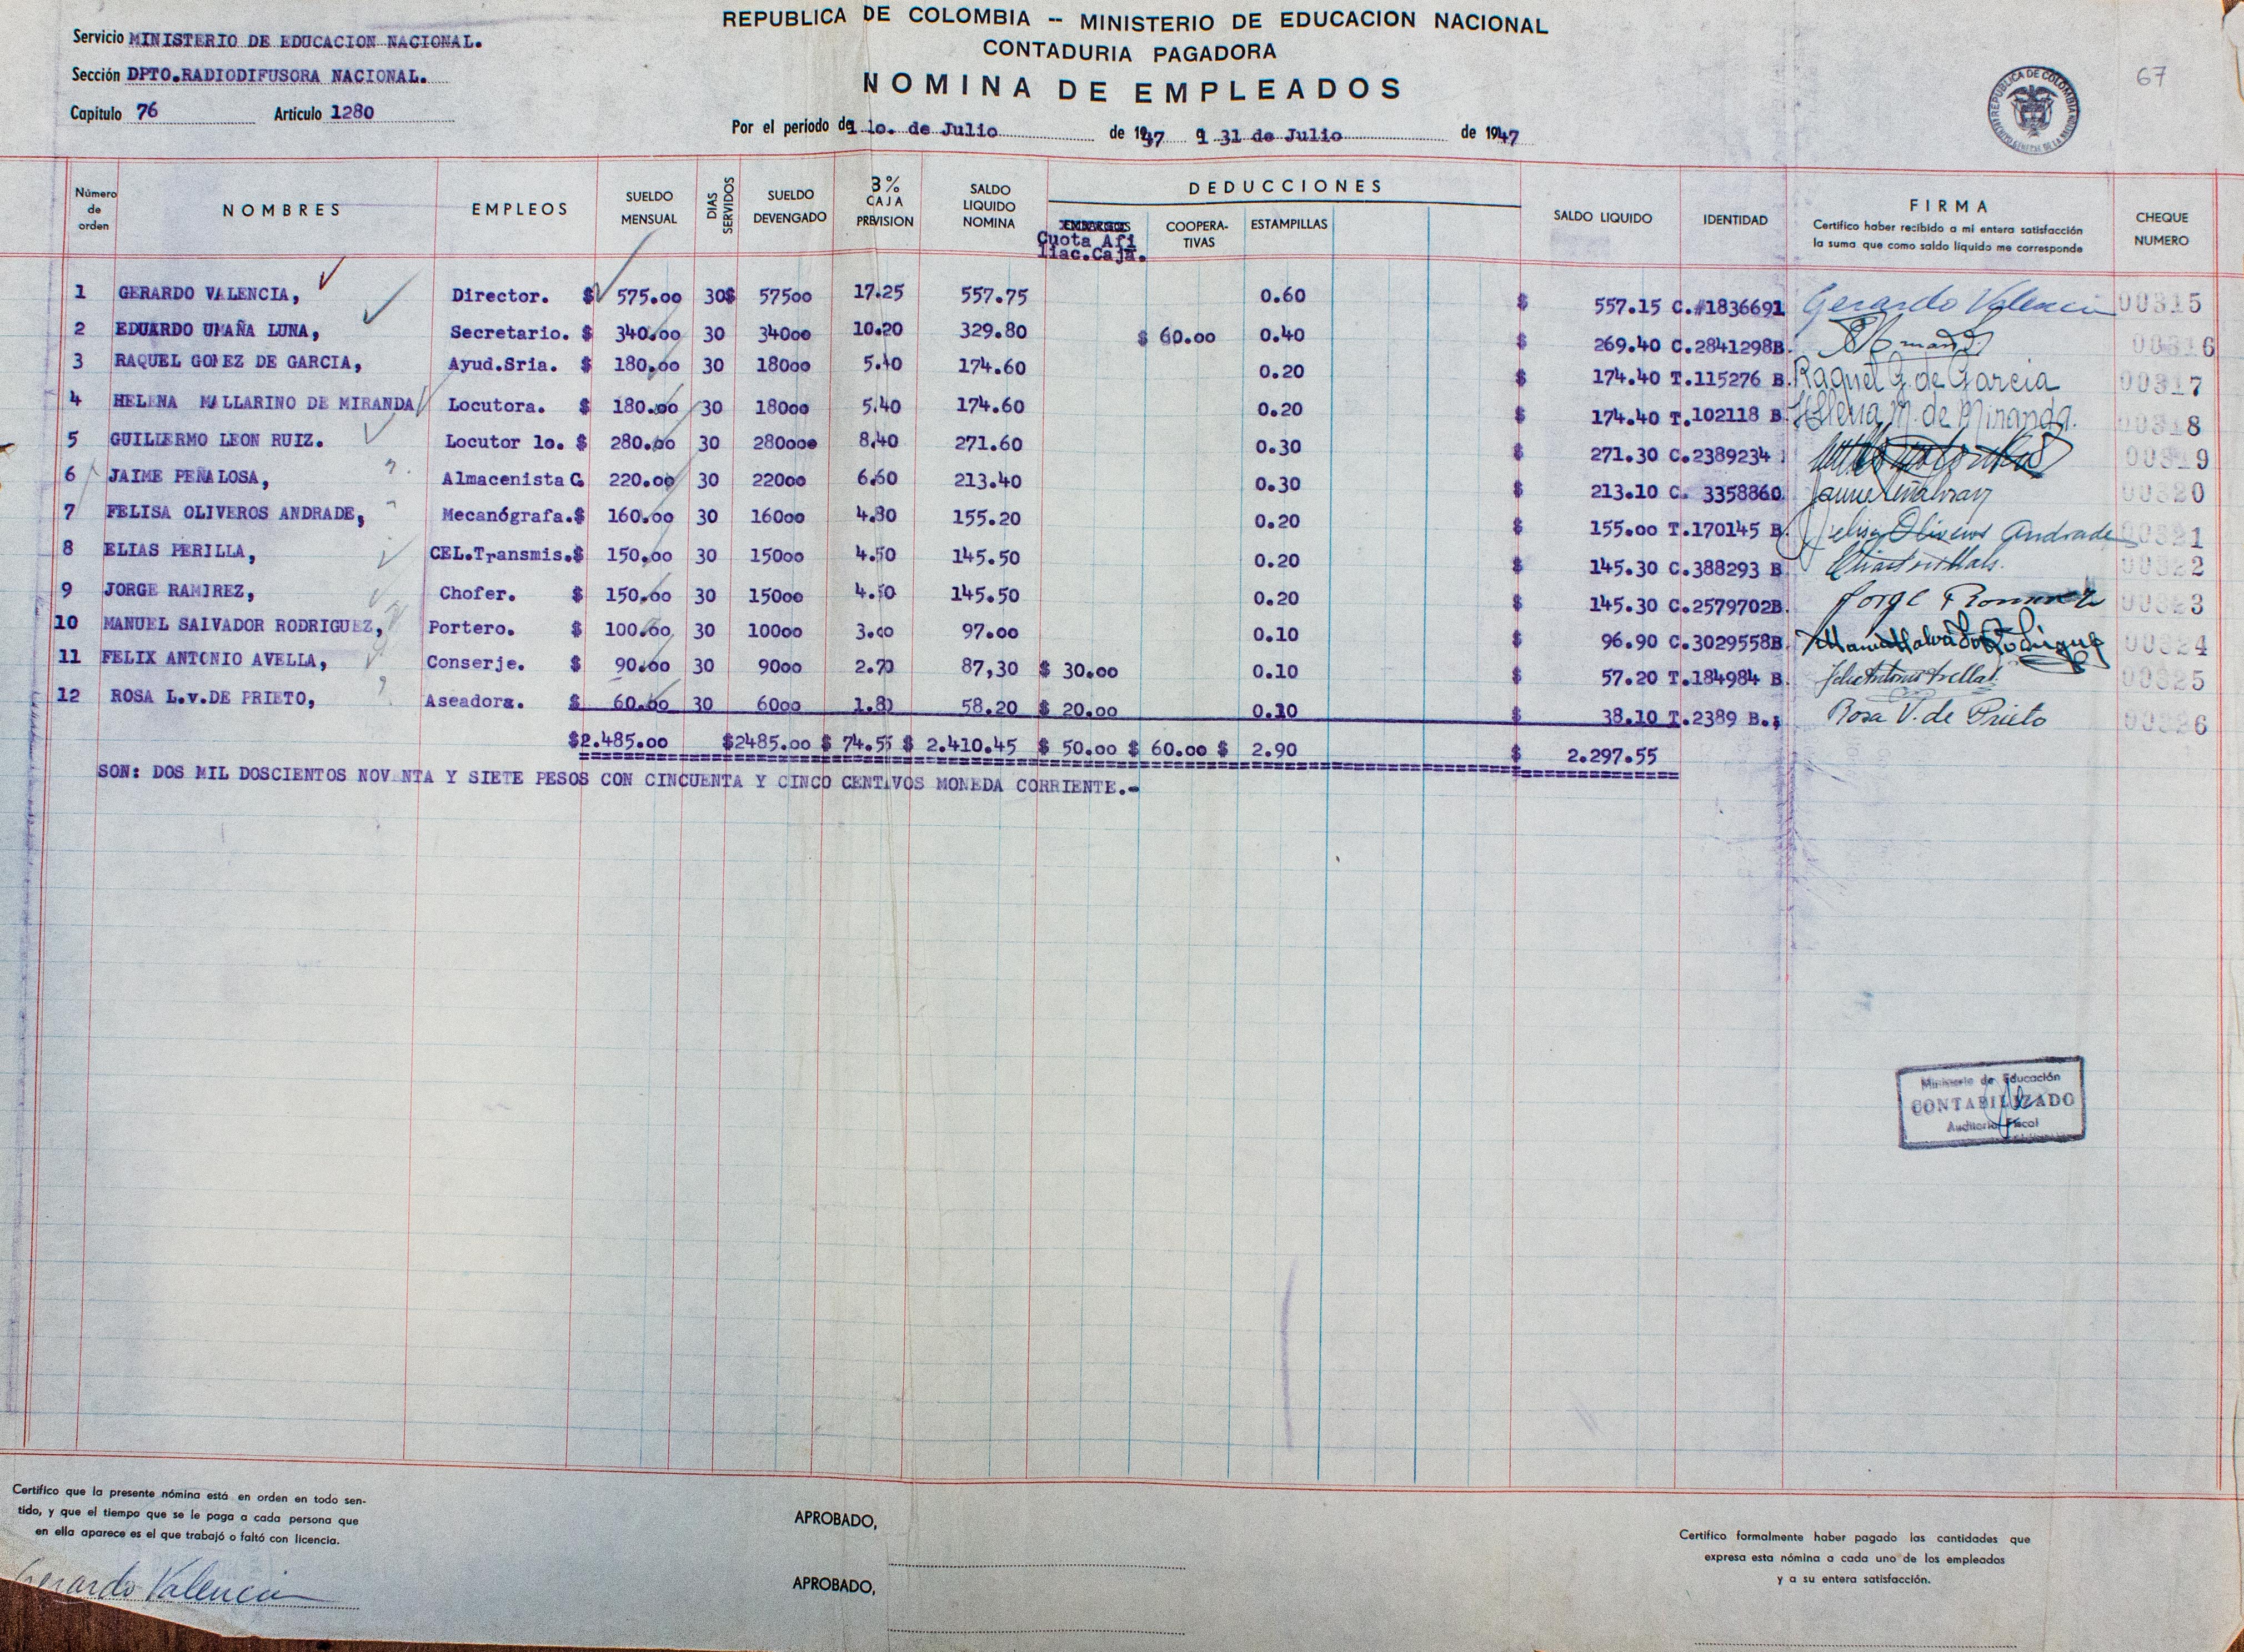 REPUBLICA DE COLOMBIA -- MINISTERIO DE EDUCACION NACIONAL
CONTADURIA PAGADORA
NOMINA DE EMPLEADOS
Servicio MINISTERIO DE EDUCACION NACIONAL.
Sección DPTO.RADIODIFUSORA NACIONAL.
Capítulo 76 Artículo 1280
Por el periodo de 1o. de Julio de 1947 a 31 de Julio de 1947
67
REPUBLICA DE COLOMBIA
Número de orden NOMBRES EMPLEOS SUELDO MENSUAL DIAS SERVIDOS SUELDO DEVENGADO 3% CAJA PREVISION SALDO LIQUIDO NOMINA DEDUCCIONES EMBARGOS Cuota Afi liac.Caja. COOPERA-TIVAS ESTAMPILLAS SALDO LIQUIDO IDENTIDAD FIRMA Certifico haber recibido a mi entera satisfacción la suma que como saldo líquido me corresponde CHEQUE NUMERO
1 GERARDO VALENCIA, Director. $ 575.00 30 $ 57500 17.25 557.75 0.60 $ 557.15 C.#1836691 Gerardo Valencia 00315
2 EDUARDO UMAÑA LUNA, Secretario. $ 340.00 30 34000 10.20 329.80 $ 60.00 0.40 $ 269.40 C.2841298B. 00316
3 RAQUEL GOMEZ DE GARCIA, Ayud.Sria. $ 180.00 30 18000 5.40 174.60 0.20 $ 174.40 T.115276 B. Raquel G. de Garcia 00317
4 HELENA MALLARINO DE MIRANDA Locutora. $ 180.00 30 18000 5.40 174.60 0.20 $ 174.40 T.102118 B. Helena M. de Miranda. 00318
5 GUILLERMO LEON RUIZ. Locutor 1o. $ 280.00 30 28000 8.40 271.60 0.30 $ 271.30 C.2389234 00319
6 JAIME PEÑALOSA, Almacenista C. 220.00 30 22000 6.60 213.40 0.30 $ 213.10 C. 3358860 Jaime Peñalosa 00320
7 FELISA OLIVEROS ANDRADE, Mecanógrafa.$ 160.00 30 16000 4.80 155.20 0.20 $ 155.00 T.170145 B. Felisa Oliveros Andrade 00321
8 ELIAS PERILLA, CEL.Transmis.$ 150.00 30 15000 4.50 145.50 0.20 $ 145.30 C.388293 B 00322
9 JORGE RAMIREZ, Chofer. $ 150.00 30 15000 4.50 145.50 0.20 $ 145.30 C.2579702B. Jorge Ramirez 00323
10 MANUEL SALVADOR RODRIGUEZ, Portero. $ 100.00 30 10000 3.00 97.00 0.10 $ 96.90 C.3029558B. Manuel Salvador Rodriguez 00324
11 FELIX ANTONIO AVELLA, Conserje. $ 90.00 30 9000 2.70 87,30 $ 30.00 0.10 $ 57.20 T.184984 B. Felix Antonio Avella 00325
12 ROSA L.v.DE PRIETO, Aseadora. $ 60.00 30 6000 1.80 58.20 $ 20.00 0.10 $ 38.10 T.2389 B., Rosa V. de Prieto 00326
$2.485.00 $2485.00 $ 74.55 $ 2.410.45 $ 50.00 $ 60.00 $ 2.90 $ 2.297.55
SON: DOS MIL DOSCIENTOS NOVENTA Y SIETE PESOS CON CINCUENTA Y CINCO CENTAVOS MONEDA CORRIENTE.-
Ministerio de Educación
CONTABILIZADO
Auditoria Fiscal
Certifico que la presente nómina está en orden en todo sen-
tido, y que el tiempo que se le paga a cada persona que
en ella aparece es el que trabajó o faltó con licencia.
Gerardo Valencia
APROBADO,
APROBADO,
Certifico formalmente haber pagado las cantidades que
expresa esta nómina a cada uno de los empleados
y a su entera satisfacción.